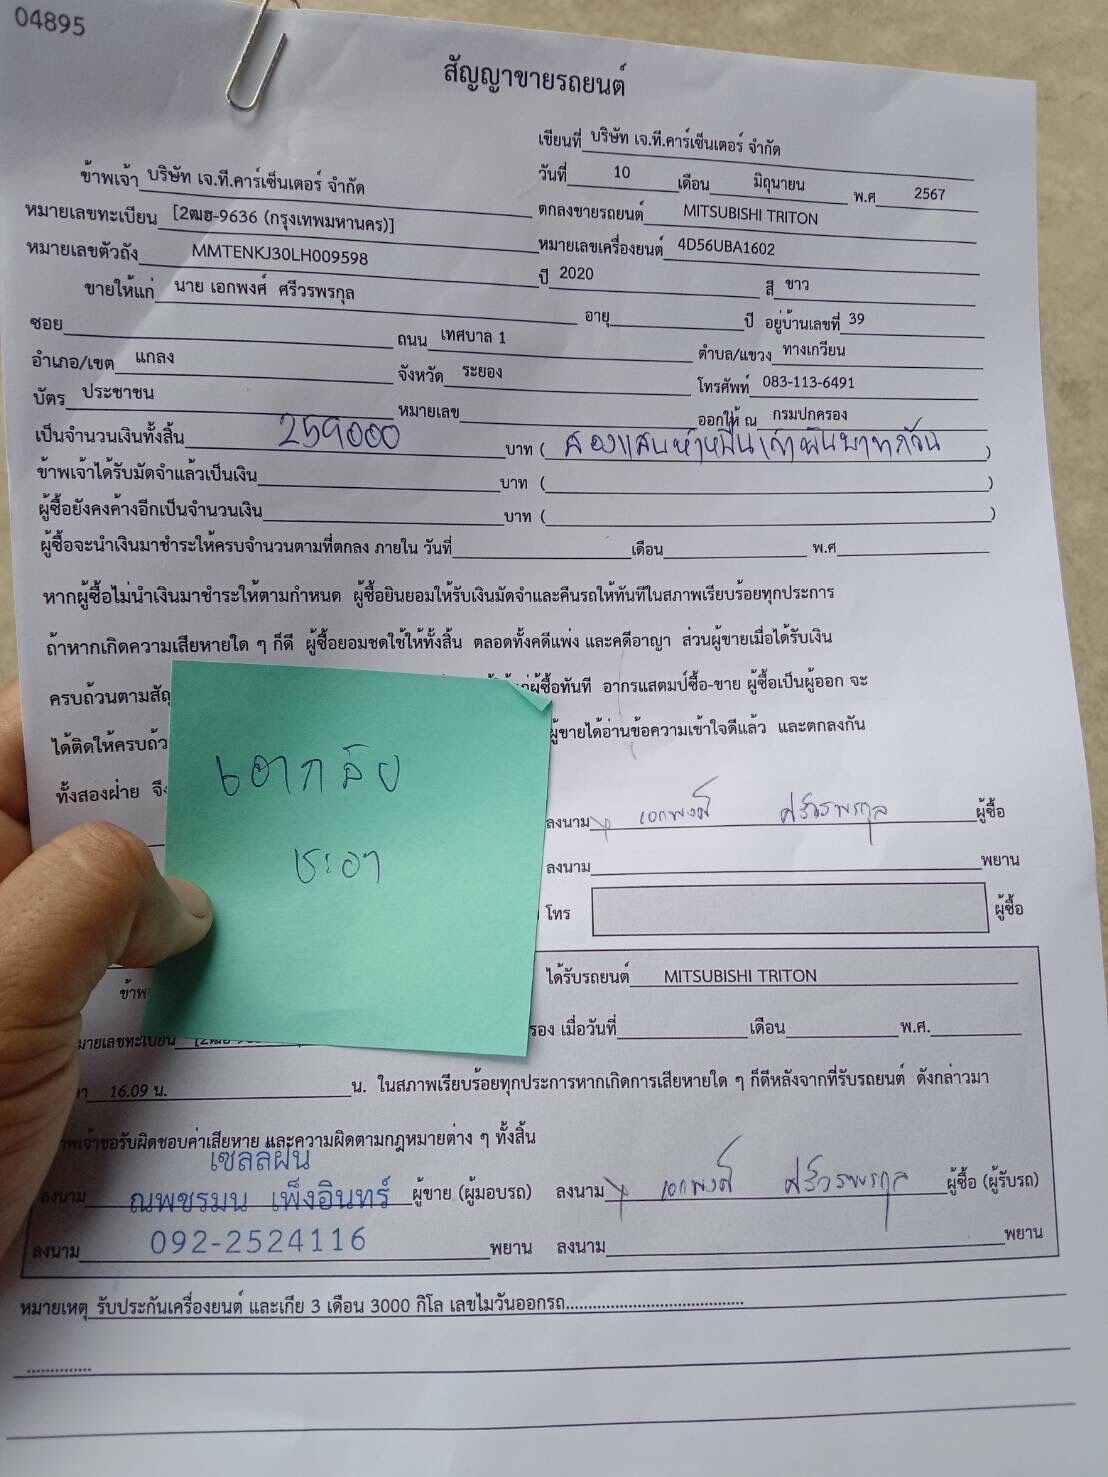 04895
สัญญาขายรถยนต์
เขียนที่ บริษัท เจ.ที.คาร์เซ็นเตอร์ จำกัด
วันที่ 10 เดือน มิถุนายน พ.ศ 2567
ข้าพเจ้า บริษัท เจ.ที.คาร์เซ็นเตอร์ จำกัด ตกลงขายรถยนต์ MITSUBISHI TRITON
หมายเลขทะเบียน [2ฒฮ-9636 (กรุงเทพมหานคร)] หมายเลขเครื่องยนต์ 4D56UBA1602
หมายเลขตัวถัง MMTENKJ30LH009598 ปี 2020 สี ขาว
ขายให้แก่ นาย เอกพงศ์ ศรีวรพรกุล อายุ ปี อยู่บ้านเลขที่ 39
ซอย ถนน เทศบาล 1 ตำบล/แขวง ทางเกวียน
อำเภอ/เขต แกลง จังหวัด ระยอง โทรศัพท์ 083-113-6491
บัตร ประชาชน หมายเลข ออกให้ ณ กรมปกครอง
เป็นจำนวนเงินทั้งสิ้น 259000 บาท ( สองแสนห้าหมื่นเก้าพันบาทถ้วน )
ข้าพเจ้าได้รับมัดจำแล้วเป็นเงิน บาท ( )
ผู้ซื้อยังคงค้างอีกเป็นจำนวนเงิน บาท ( )
ผู้ซื้อจะนำเงินมาชำระให้ครบจำนวนตามที่ตกลง ภายใน วันที่ เดือน พ.ศ
หากผู้ซื้อไม่นำเงินมาชำระให้ตามกำหนด ผู้ซื้อยินยอมให้รับเงินมัดจำและคืนรถให้ทันทีในสภาพเรียบร้อยทุกประการ
ถ้าหากเกิดความเสียหายใด ๆ ก็ดี ผู้ซื้อยอมชดใช้ให้ทั้งสิ้น ตลอดทั้งคดีแพ่ง และคดีอาญา ส่วนผู้ขายเมื่อได้รับเงิน
ครบถ้วนตาม ผู้ซื้อทันที อากรแสตมป์ซื้อ-ขาย ผู้ซื้อเป็นผู้ออก จะ
ได้ติดให้ครบถ้ว ผู้ขายได้อ่านข้อความเข้าใจดีแล้ว และตกลงกัน
ทั้งสองฝ่าย จึง
เอากลับ
ชะอำ
ลงนาม เอกพงศ์ ศรีวรพรกุล ผู้ซื้อ
ลงนาม พยาน
โทร ผู้ซื้อ
ข้าพ ได้รับรถยนต์ MITSUBISHI TRITON
มายเลขทะเบียน รอง เมื่อวันที่ เดือน พ.ศ.
า 16.09 น. น. ในสภาพเรียบร้อยทุกประการหากเกิดการเสียหายใด ๆ ก็ดีหลังจากที่รับรถยนต์ ดังกล่าวมา
าพเจ้าขอรับผิดชอบค่าเสียหาย และความผิดตามกฎหมายต่าง ๆ ทั้งสิ้น
เซลล์ฝน
ลงนาม ณพชรมน เพ็งอินทร์ ผู้ขาย (ผู้มอบรถ) ลงนาม เอกพงศ์ ศรีวรพรกุล ผู้ซื้อ (ผู้รับรถ)
ลงนาม 092-2524116 พยาน ลงนาม พยาน
หมายเหตุ รับประกันเครื่องยนต์ และเกีย 3 เดือน 3000 กิโล เลขไมวันออกรถ........................................
..............